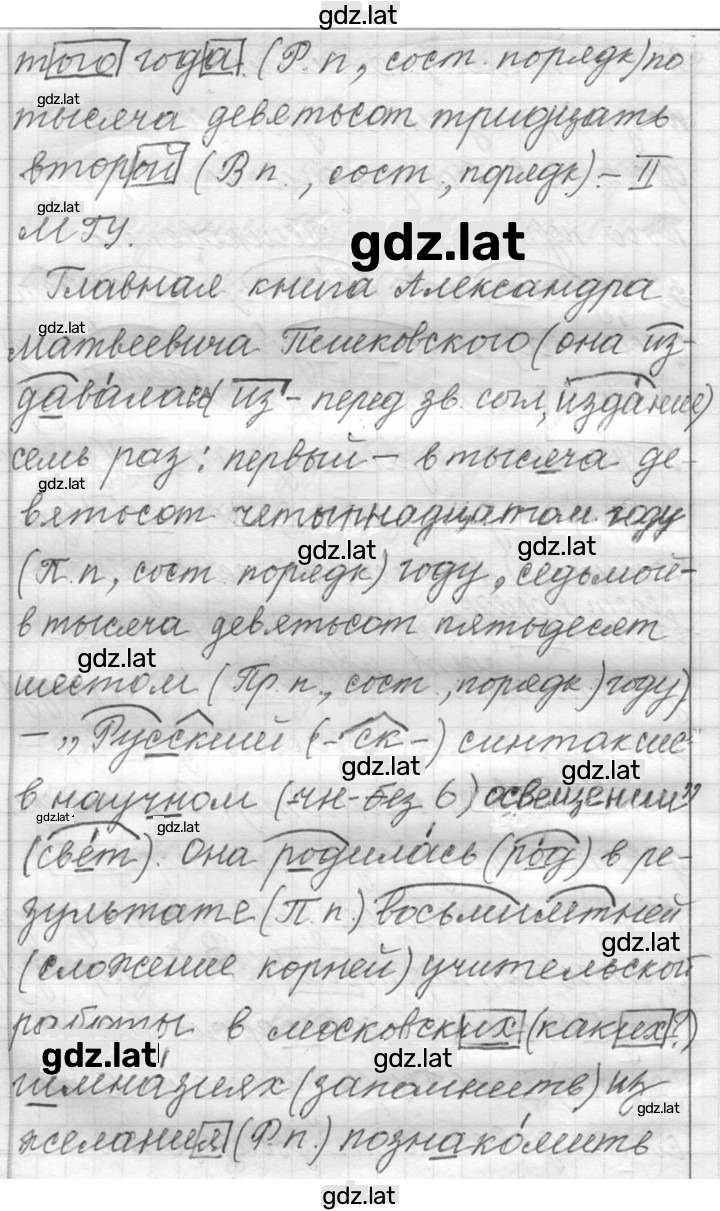 gdz.lat
того года. (Р.п., сост. порядк) по
gdz.lat
тысяча девятьсот тридцать
второй (В п., сост, порядк) - II
gdz.lat
МГУ.
gdz.lat
Главная книга Александра
gdz.lat
Матвеевича Пешковского (она из-
давалась из - перед зв. согл, издание)
семь раз: первый - в тысяча де-
gdz.lat
вятьсот четырнадцатом году
gdz.lat gdz.lat
(П.п, сост. порядк) году, седьмой-
в тысяча девятьсот пятьдесят
gdz.lat
шестом (Пр.п., сост, порядк) году)
- „Русский (-ск-) синтаксис
gdz.lat gdz.lat
в научном (-чн- без ь) освещении”
gdz.lat gdz.lat
(свет). Она родилась (род) в ре-
зультате (П.п.) восьмилетней
gdz.lat
(сложение корней) учительской
работы в московских (каких?)
gdz.lat gdz.lat
гимназиях (запомнить) из
gdz.lat
желания (Р.п.) познакомить
gdz.lat